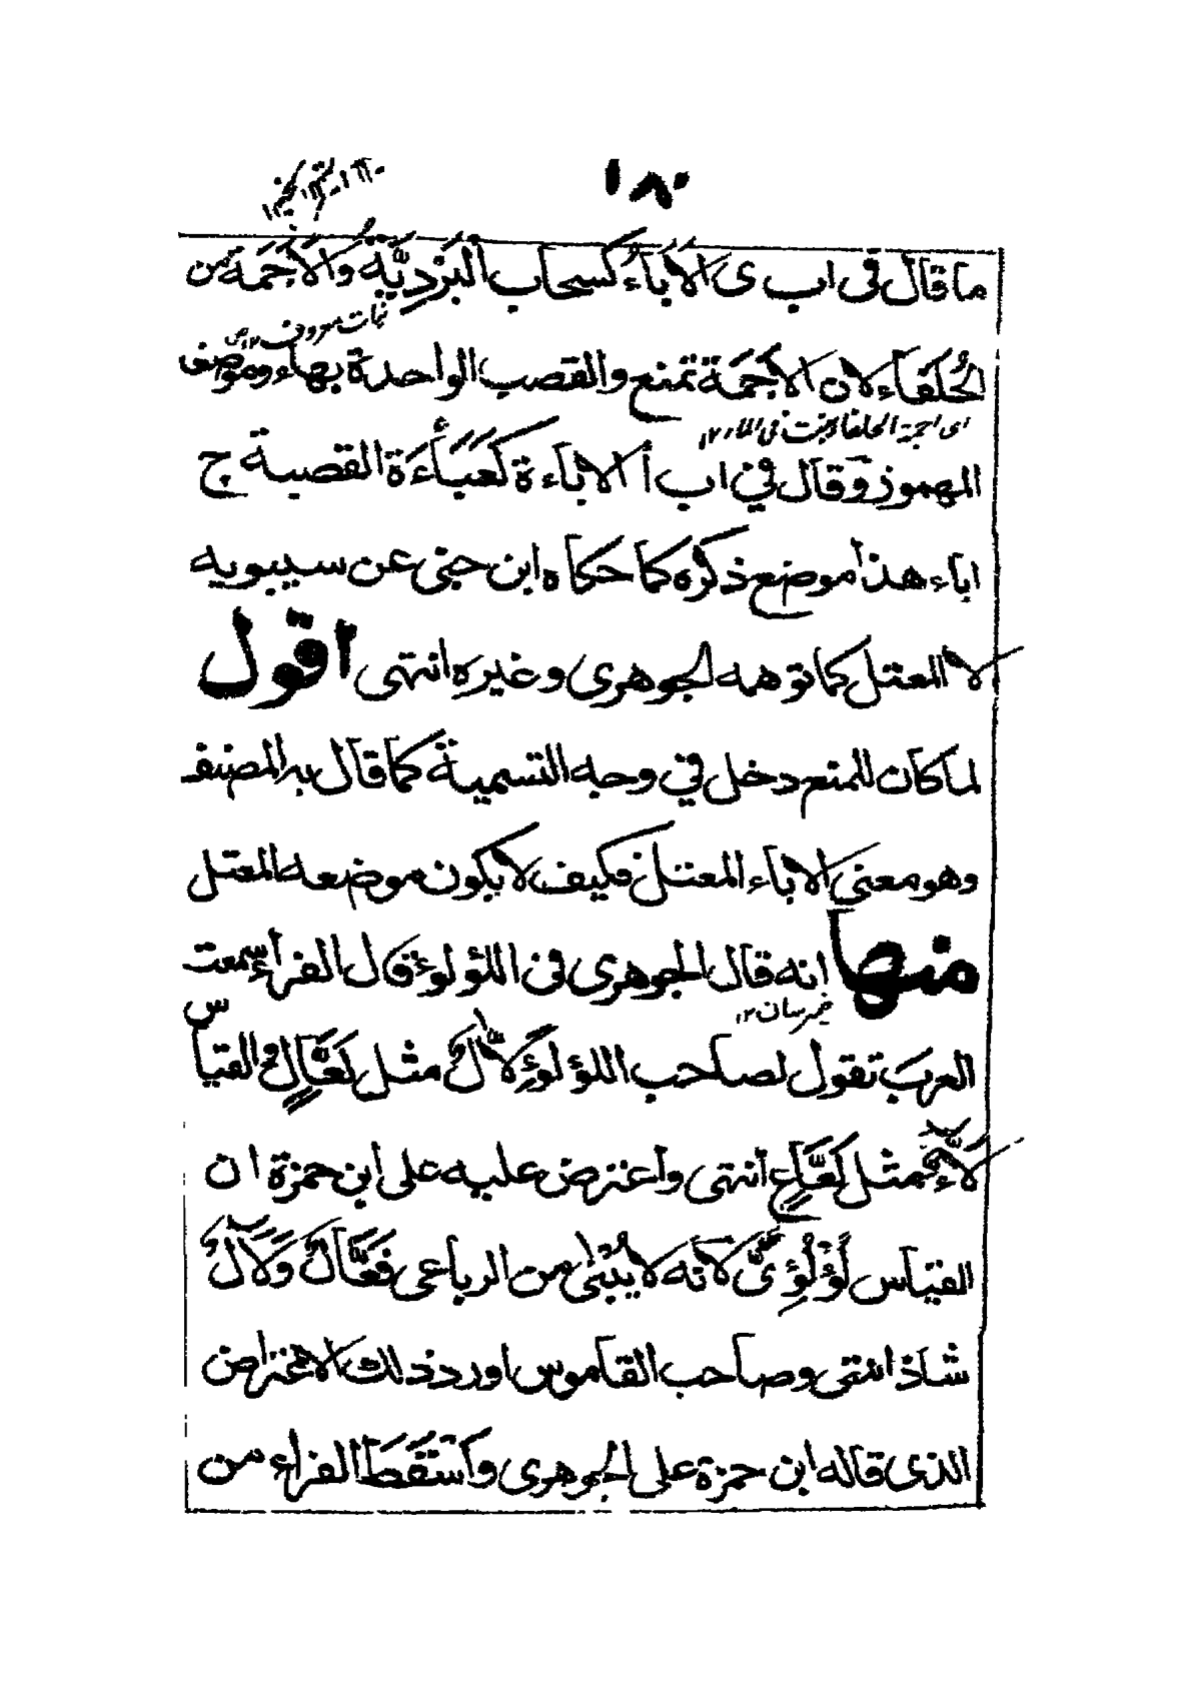 ١٨٠
ما قال في اب ى الأَبَاءُ كسحاب البَرْدِيَّةُ والأَجَمَة من
نبات معروف ١٢
الحُلَفاء لان الأَجَمَة تمنع والقصب الواحدة بهاء وموضعه
اى اجمة الحلفا وينبت فى الماء ١٢
المهموز وَقال في اب أ الاباءة كَعَبَأَءَة القصبة ج
اباء هذا موضع ذكره كما حكاه ابن جنى عن سيبويه
لا المعتل كما توهمه الجوهرى وغيره انتهى اقول
لما كان للمنع دخل في وجه التسمية كما قال به المصنف
وهو معنى الاباء المعتل فكيف لا يكون موضعه المعتل
منها انه قال الجوهرى فى اللؤلوءة قال الفراء سمعت
العرب تقول لصاحب اللؤلوَءِ لأّلٌ مثل لَعَّالٍ والقياس
لأّءٌ مثل لَعَّاعٍ انتهى واعترض عليه على ابن حمزة ان
القياس لُؤْلُؤِىٌّ لاَنه لا يُبْنٰى من الرباعى فَعَّالٌ وَلأّلٌ
شاذ انتهى وصاحب القاموس اورد ذلك الاعتراض
الذى قاله ابن حمزة على الجوهرى وأَسْقَطَ الفراء من